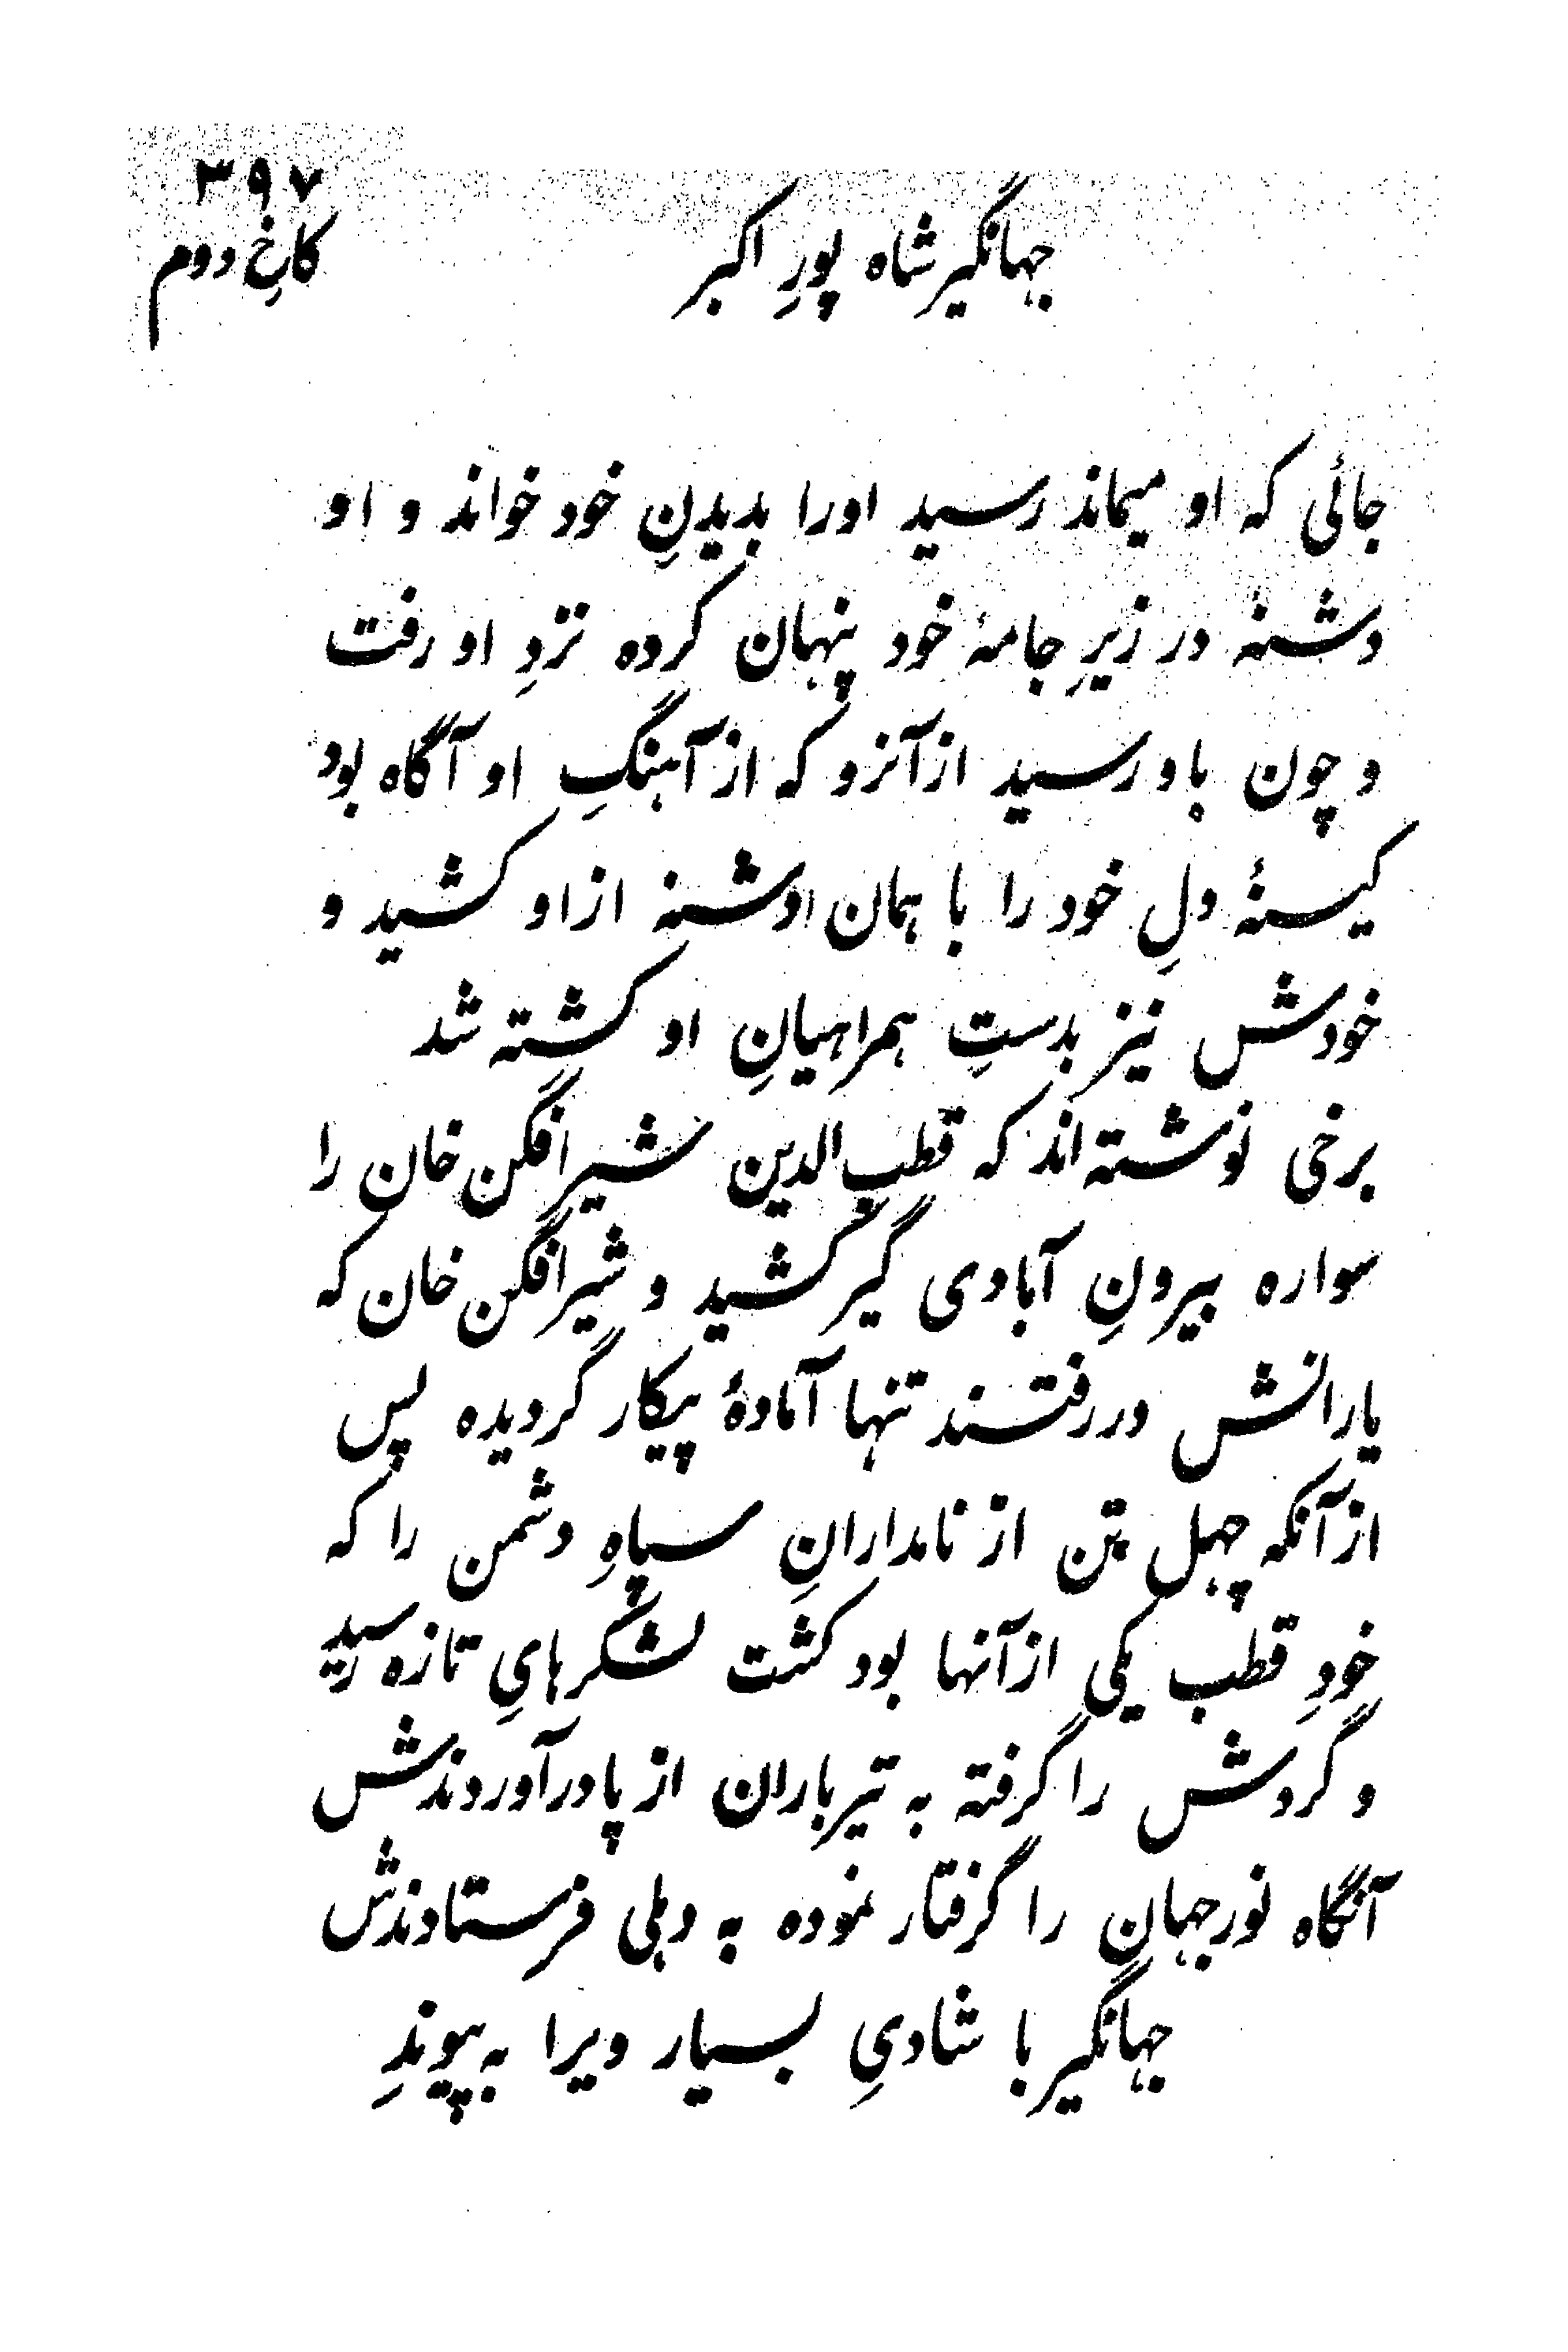 ۳۹۷
جهانگیر شاه پورِ اکبر
کاخِ دوم
جائی که او میماند رسید اورا بدیدنِ خود خواند و او
دشنهٔ در زیرِ جامهٔ خود پنهان کرده نزدِ او رفت
و چون باو رسید ازآنرو که از آهنگِ او آگاه بود
کینهٔ دلِ خود را با همان دشنه از او کشید و
خودش نیز بدستِ همراهیانِ او کشته شد
برخی نوشته‌اند که قطب‌الدین شیر افگن خان را
سواره بیرونِ آبادی گیر کشید و شیر افگن خان که
یارانش دررفتند تنها آمادهٔ پیکار گردیده پس
ازآنکه چهل تن از نامدارانِ سپاهِ دشمن را که
خودِ قطب یکی ازآنها بود کشت لشگرهایِ تازه رسید
و گردش را گرفته به تیرباران از پا درآوردندش
آنگاه نورجهان را گرفتار نموده به دهلی فرستادندش
جهانگیر با شادیِ بسیار ویرا به پیوندِ